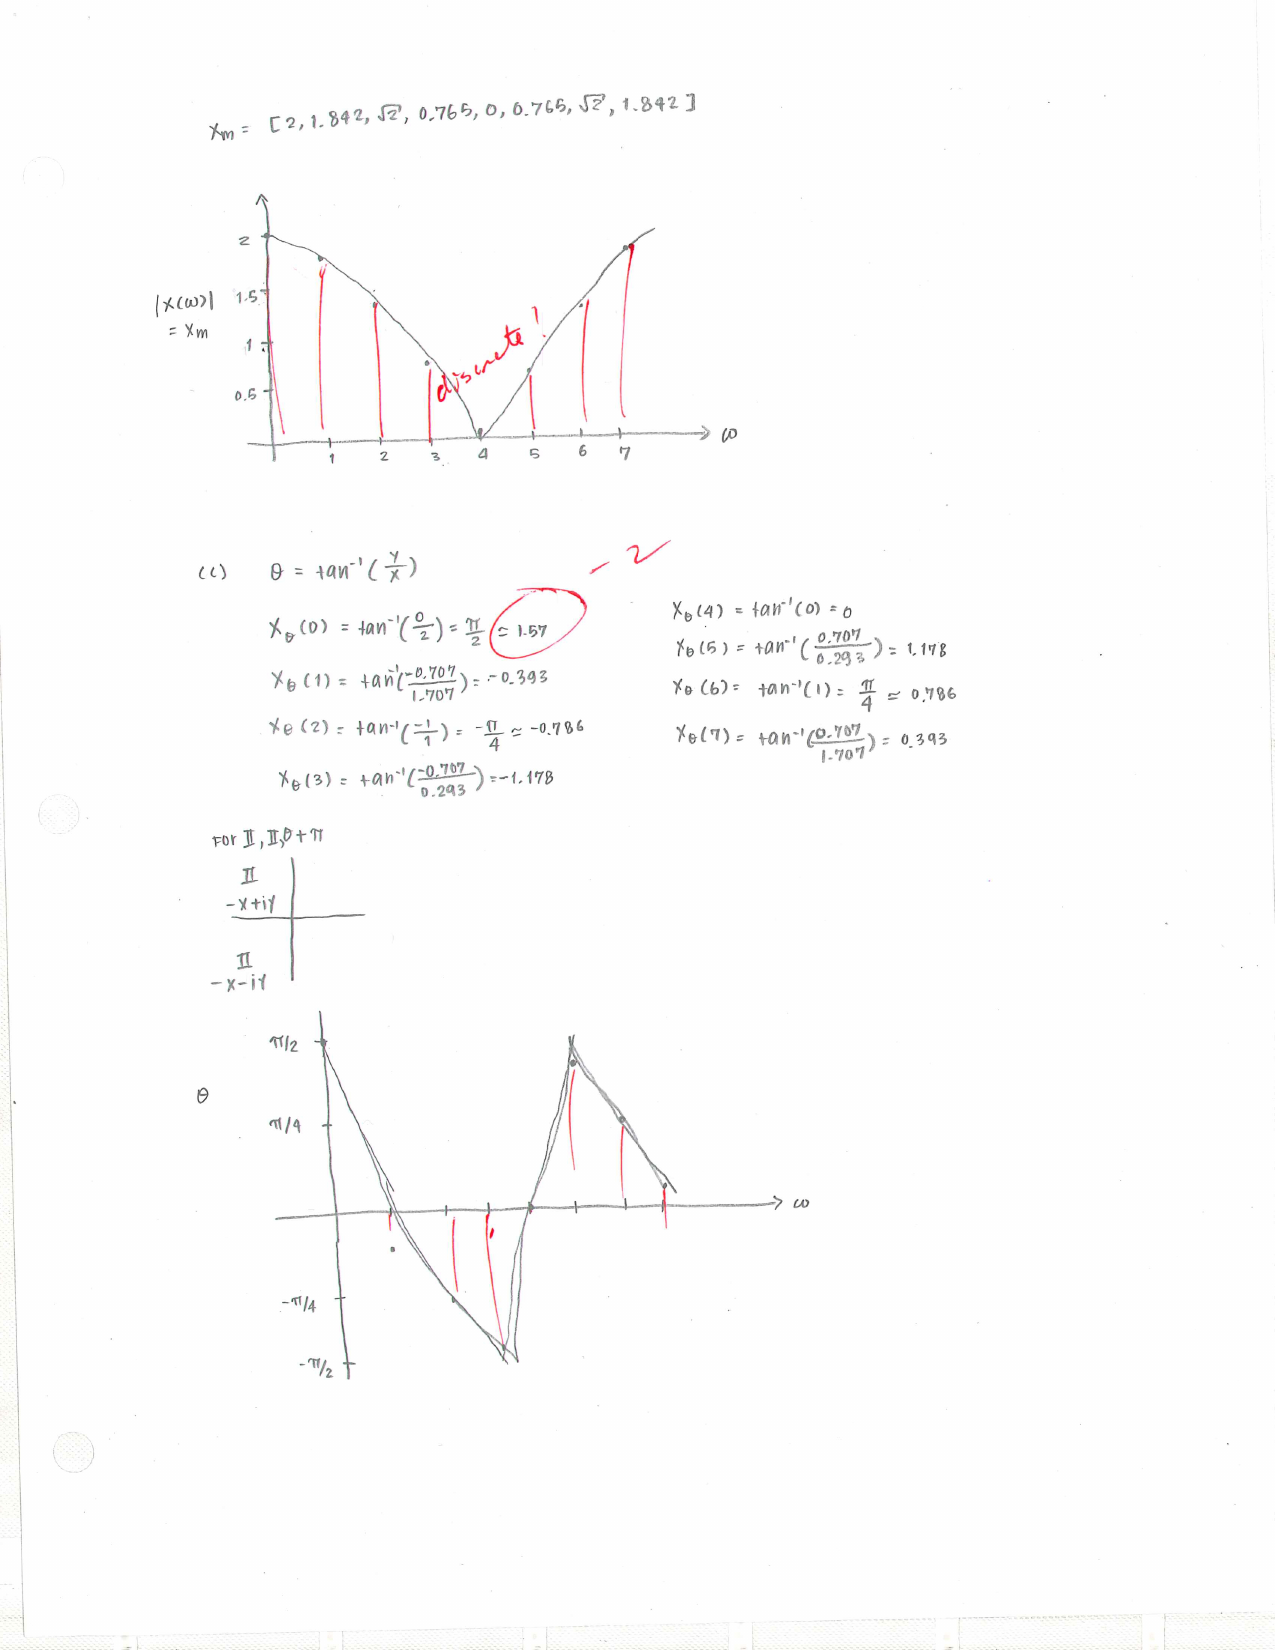 Xm = [2, 1.842, √2, 0.765, 0, 0.765, √2, 1.842]
2
|X(ω)| 1.5
= Xm
1
discrete!
0.5
1 2 3 4 5 6 7 ω
(c) θ = tan⁻¹(Y/X) -2
Xθ(0) = tan⁻¹(0/2) = π/2 ≃ 1.57
Xθ(1) = tan⁻¹(-0.707/1.707) = -0.393
Xθ(2) = tan⁻¹(-1/1) = -π/4 ≃ -0.786
Xθ(3) = tan⁻¹(-0.707/0.293) = -1.178
Xθ(4) = tan⁻¹(0) = 0
Xθ(5) = tan⁻¹(0.707/0.293) = 1.178
Xθ(6) = tan⁻¹(1) = π/4 ≃ 0.786
Xθ(7) = tan⁻¹(0.707/1.707) = 0.393
For II, II, θ+π
II
-X+iY
II
-X-iY
π/2
θ
π/4
ω
-π/4
-π/2